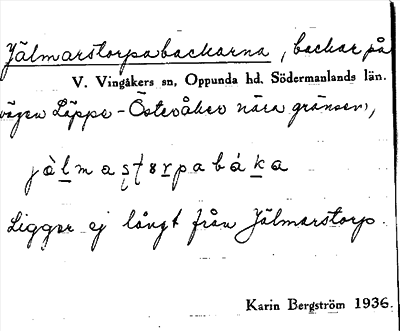 Jälmarstorpabackarna, backar på
V. Vingåkers sn, Oppunda hd. Södermanlands län.
vägen Läppe-Österåker nära gränsen,
Ligger ej långt från Jälmarstorp.
Karin Bergström 1936.